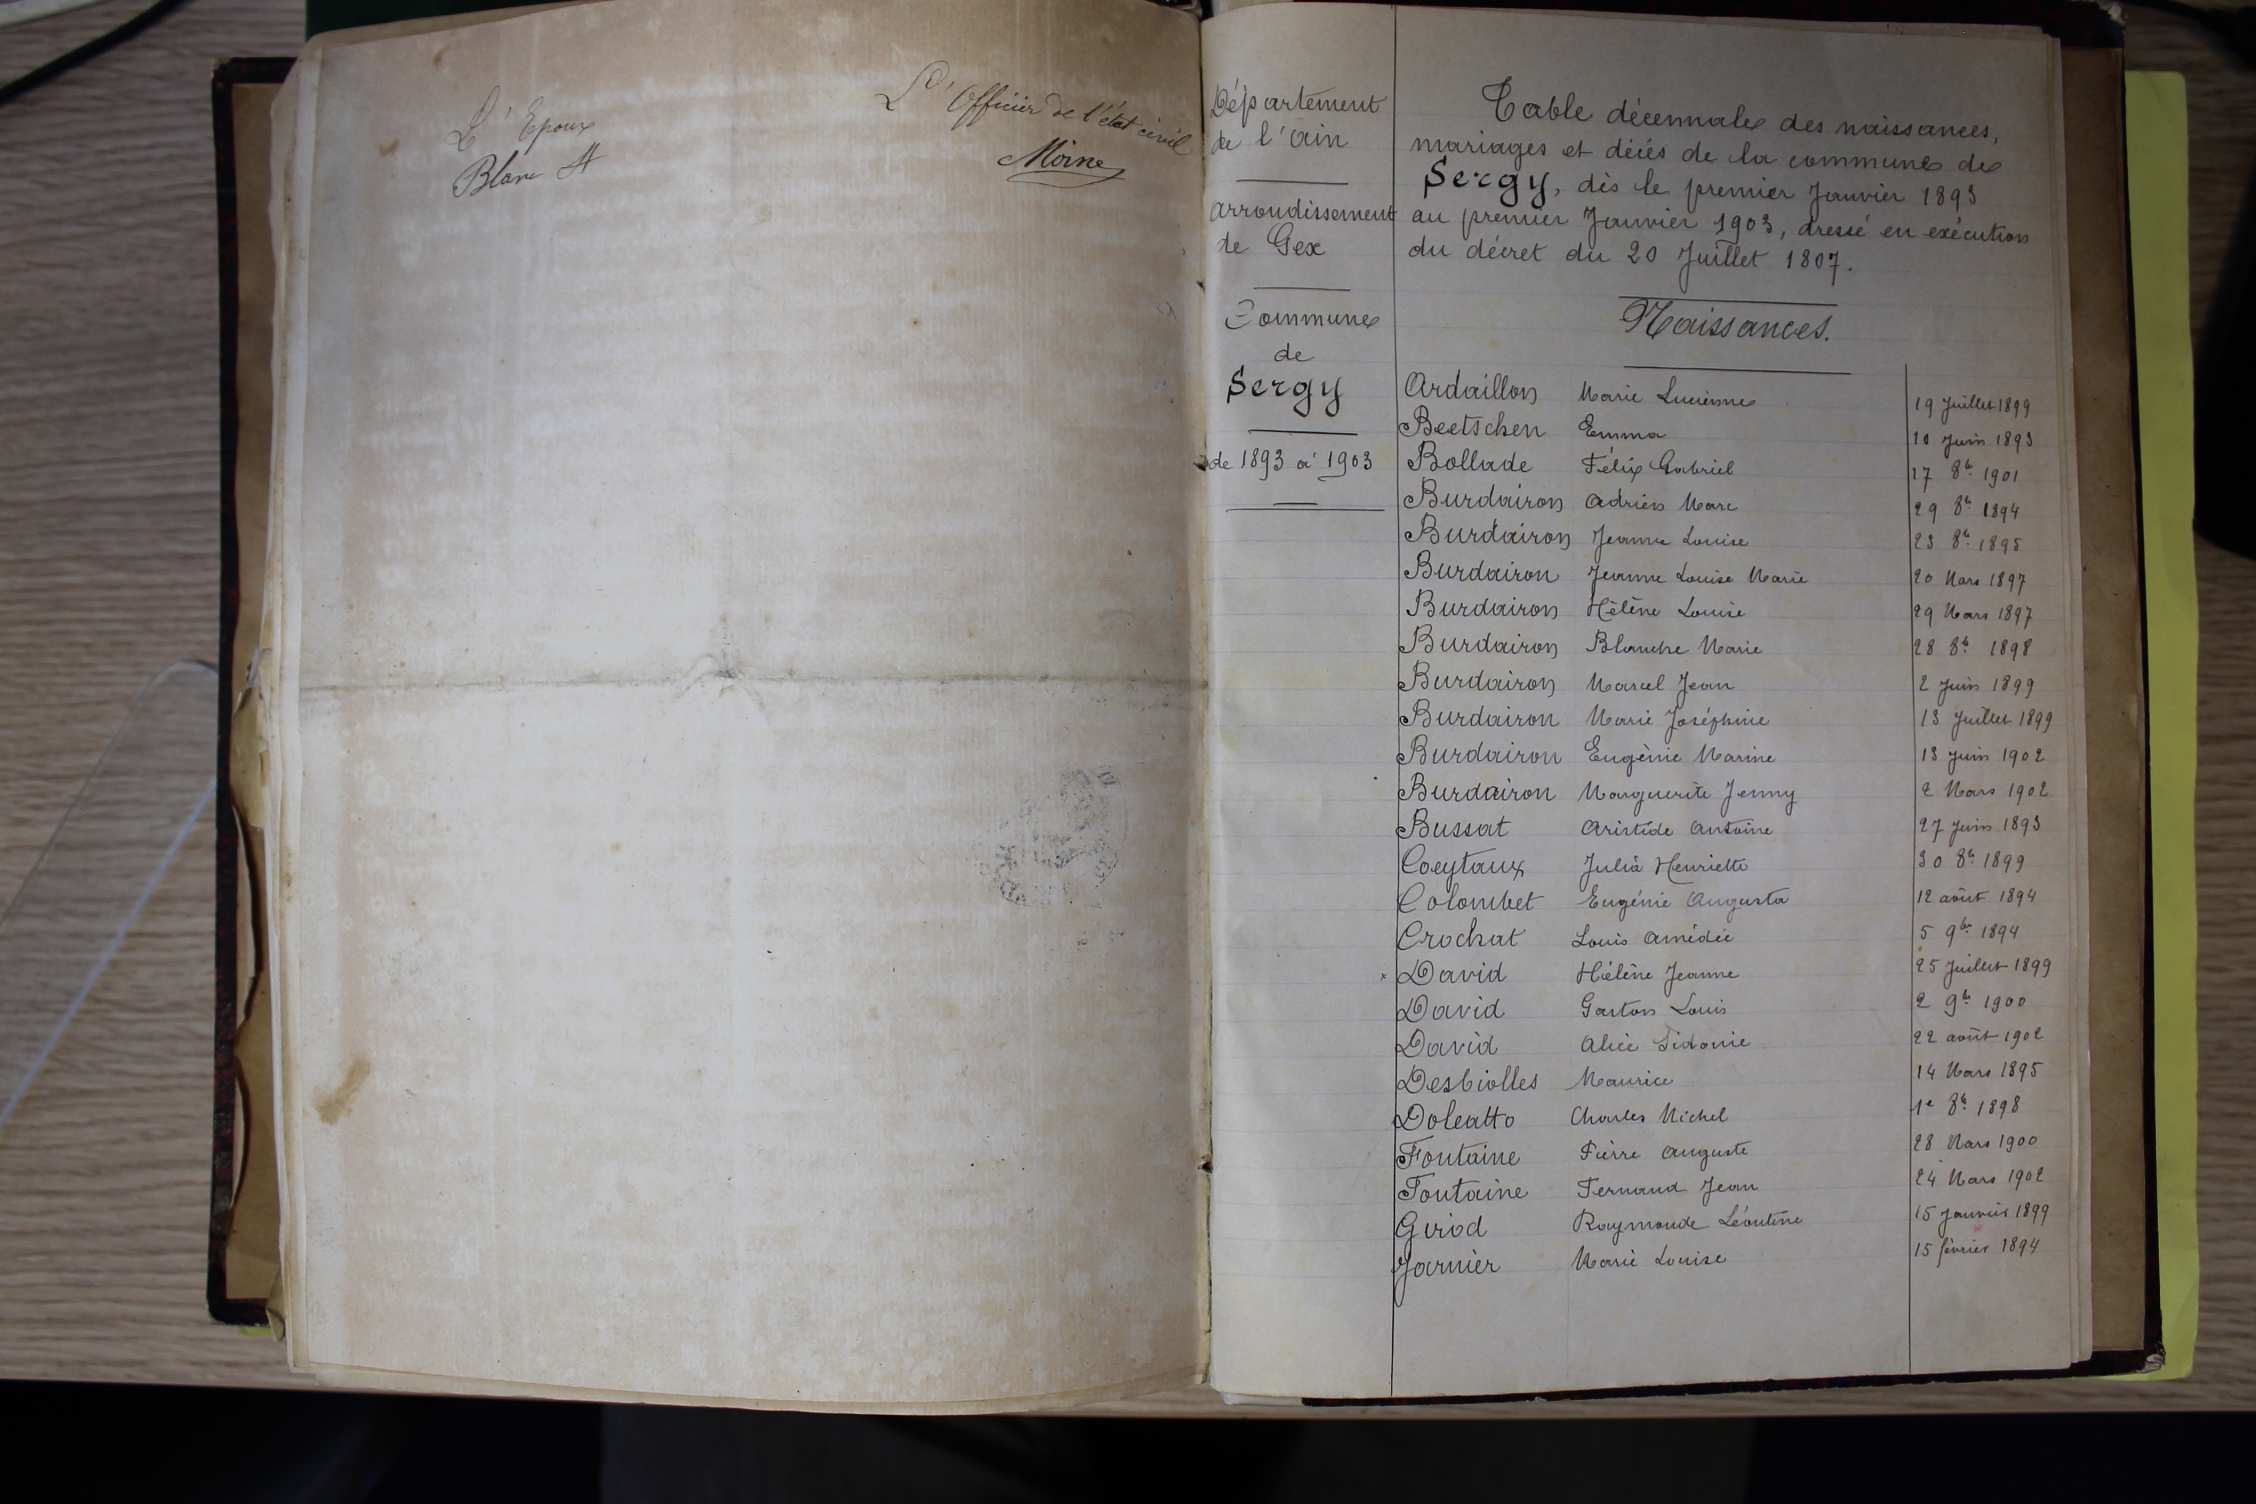 L'Epoux
Blanc A
L'Officier de l'état civil
Moine
Département
de l'ain
arrondissement
de Gex
Commune
de
Sergy
de 1893 à 1903
Table décennale des naissances,
mariages et décés de la commune de
Sergy, dès le premier Janvier 1893
au premier Janvier 1903, dressé en exécution
du décret du 20 Juillet 1807.
Naissances.
Ardaillon Marie Lucienne 19 Juillet 1899
Beetschen Emma 10 Juin 1893
Bollade Félix Gabriel 17 8b. 1901
Burdairon Adrien Marc 29 8b. 1894
Burdairon Jeanne Louise 23 8b. 1895
Burdairon Jeanne Louise Marie 20 Mars 1897
Burdairon Hélène Louise 29 Mars 1897
Burdairon Blanche Marie 28 8b. 1898
Burdairon Marcel Jean 2 Juin 1899
Burdairon Marie Joséphine 13 Juillet 1899
Burdairon Eugènie Marine 13 Juin 1902
Burdairon Marguerite Jenny 2 Mars 1902
Bussat Aristide Antoine 27 Juin 1893
Coeytaux Julia Henriette 30 8b. 1899
Colombet Eugénie Augusta 12 août 1894
Crochat Louis Amédée 5 9b. 1894
x David Hélène Jeanne 25 Juillet 1899
David Gaston Louis 2 9b. 1900
David Alice Sidonie 22 août 1902
Desbiolles Maurice 14 Mars 1895
Doleatto Charles Michel 1e 8b. 1898
Fontaine Pierre Auguste 28 Mars 1900
Fontaine Fernand Jean 24 Mars 1902
Girod Raymonde Léontine 15 Janvier 1899
Jarnier Marie Louise 15 février 1894